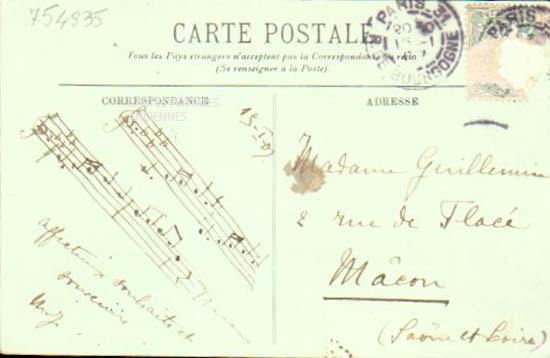 754835
CARTE POSTALE
Tous les Pays étrangers n'acceptent pas la Correspondance au recto.
(Se renseigner à la Poste).
PARIS
BOURGOGNE
PARIS
CORRESPONDANCE
ADRESSE
affectueux souhaits et
souvenirs
Madame Guillemin
2 rue de Flacé
Mâcon
(Saône et Loire)